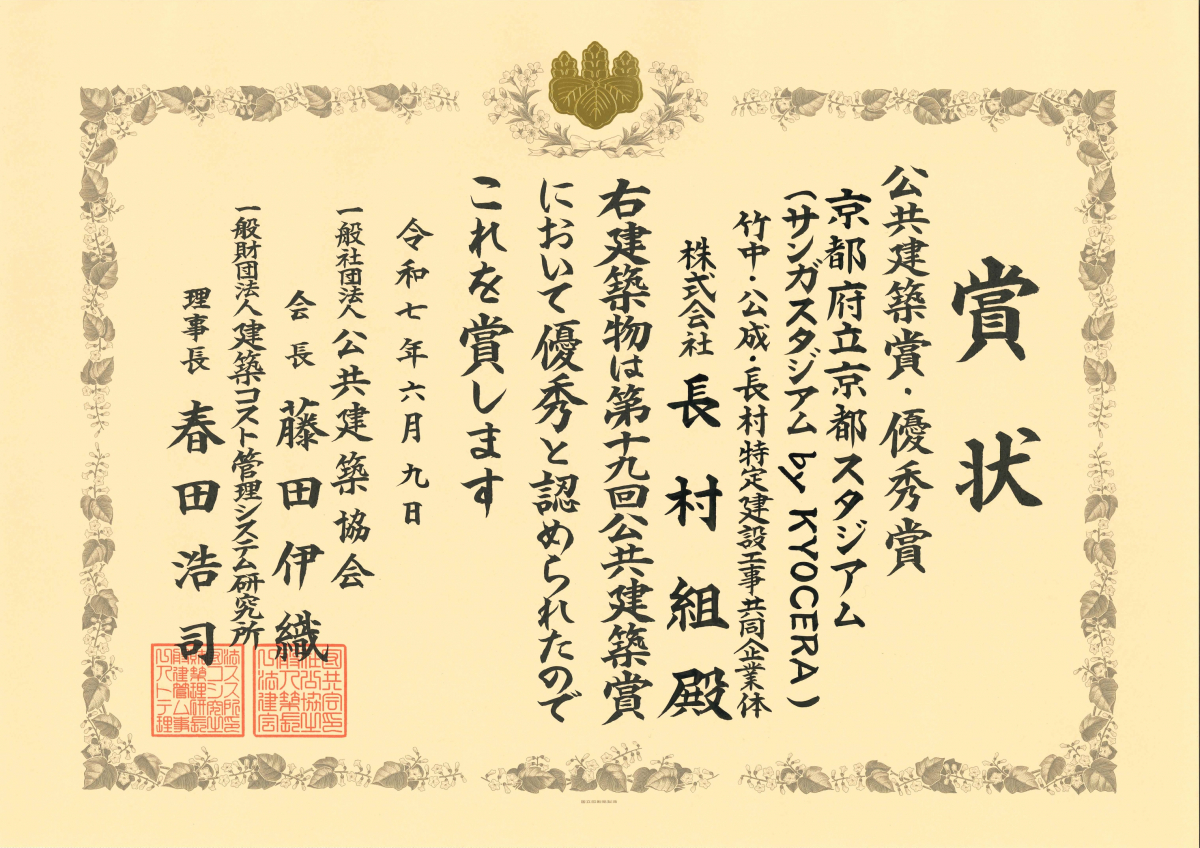 賞状
公共建築賞・優秀賞
京都府立京都スタジアム
(サンガスタジアム by KYOCERA)
竹中・公成・長村特定建設工事共同企業体
株式会社 長村組殿
右建築物は第十九回公共建築賞
において優秀と認められたので
これを賞します
令和七年六月九日
一般社団法人 公共建築協会
会長 藤田伊織
一般財団法人 建築コスト管理システム研究所
理事長 春田浩司